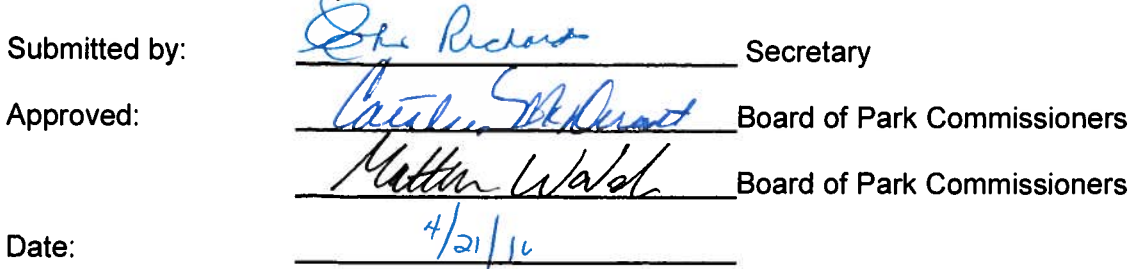 Submitted by: John Richard Secretary
Approved: McDermott Board of Park Commissioners
Matthew Walsh Board of Park Commissioners
Date: 4/21/16